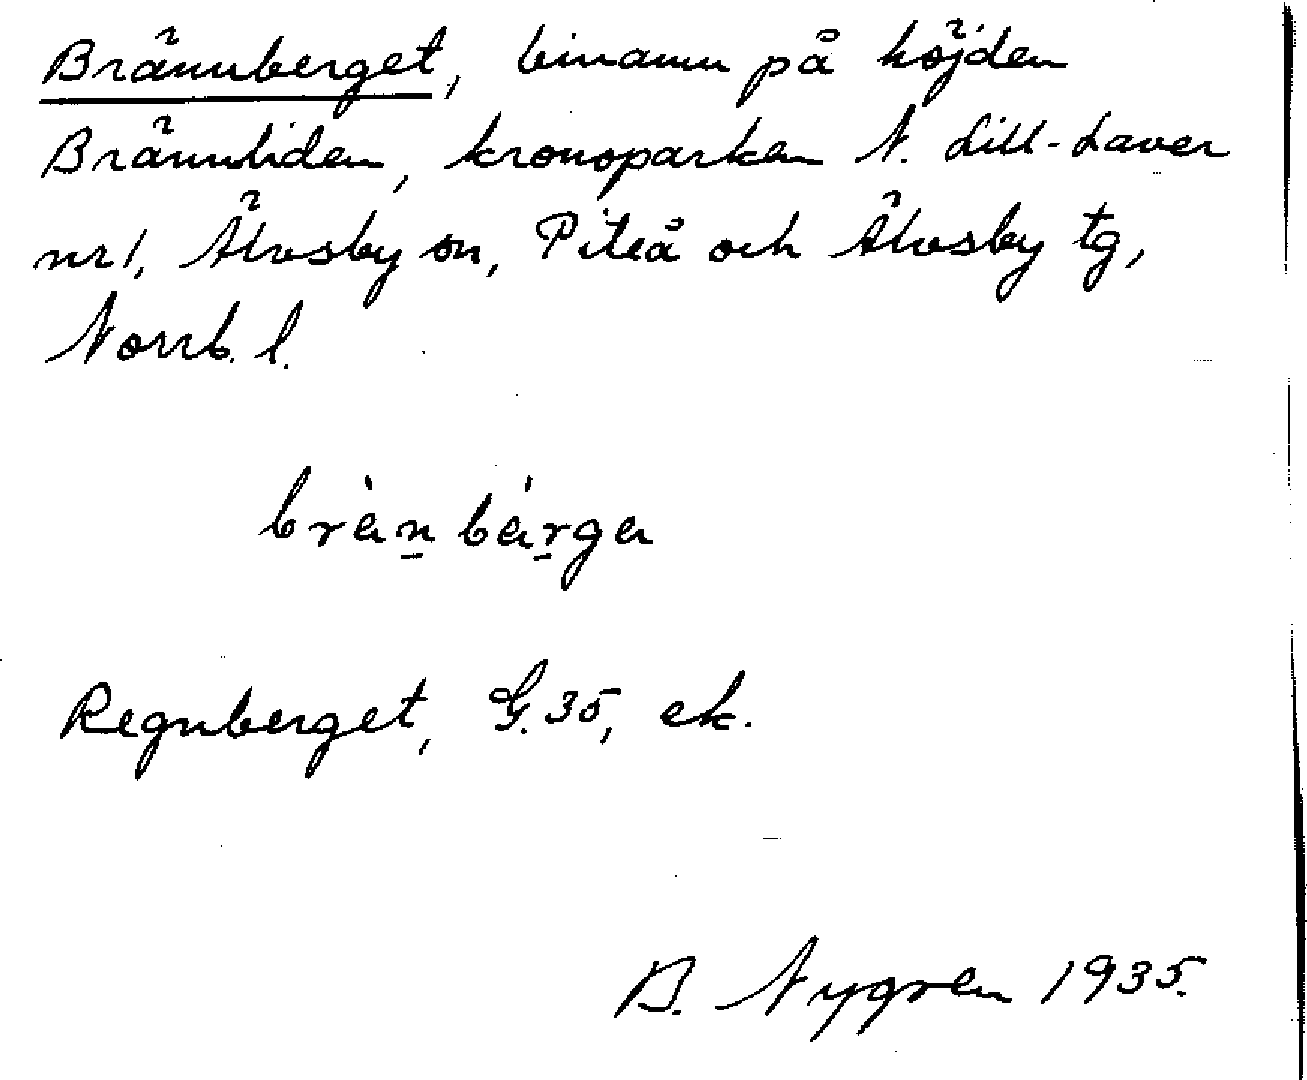 Brännberget, binamn på höjden
Brännliden, kronoparken N. Lill-Laver
nr 1, Älvsby sn, Piteå och Älvsby tg,
Norrb. l.
Regnberget, G. 35, ek.
B. Nygren 1935.